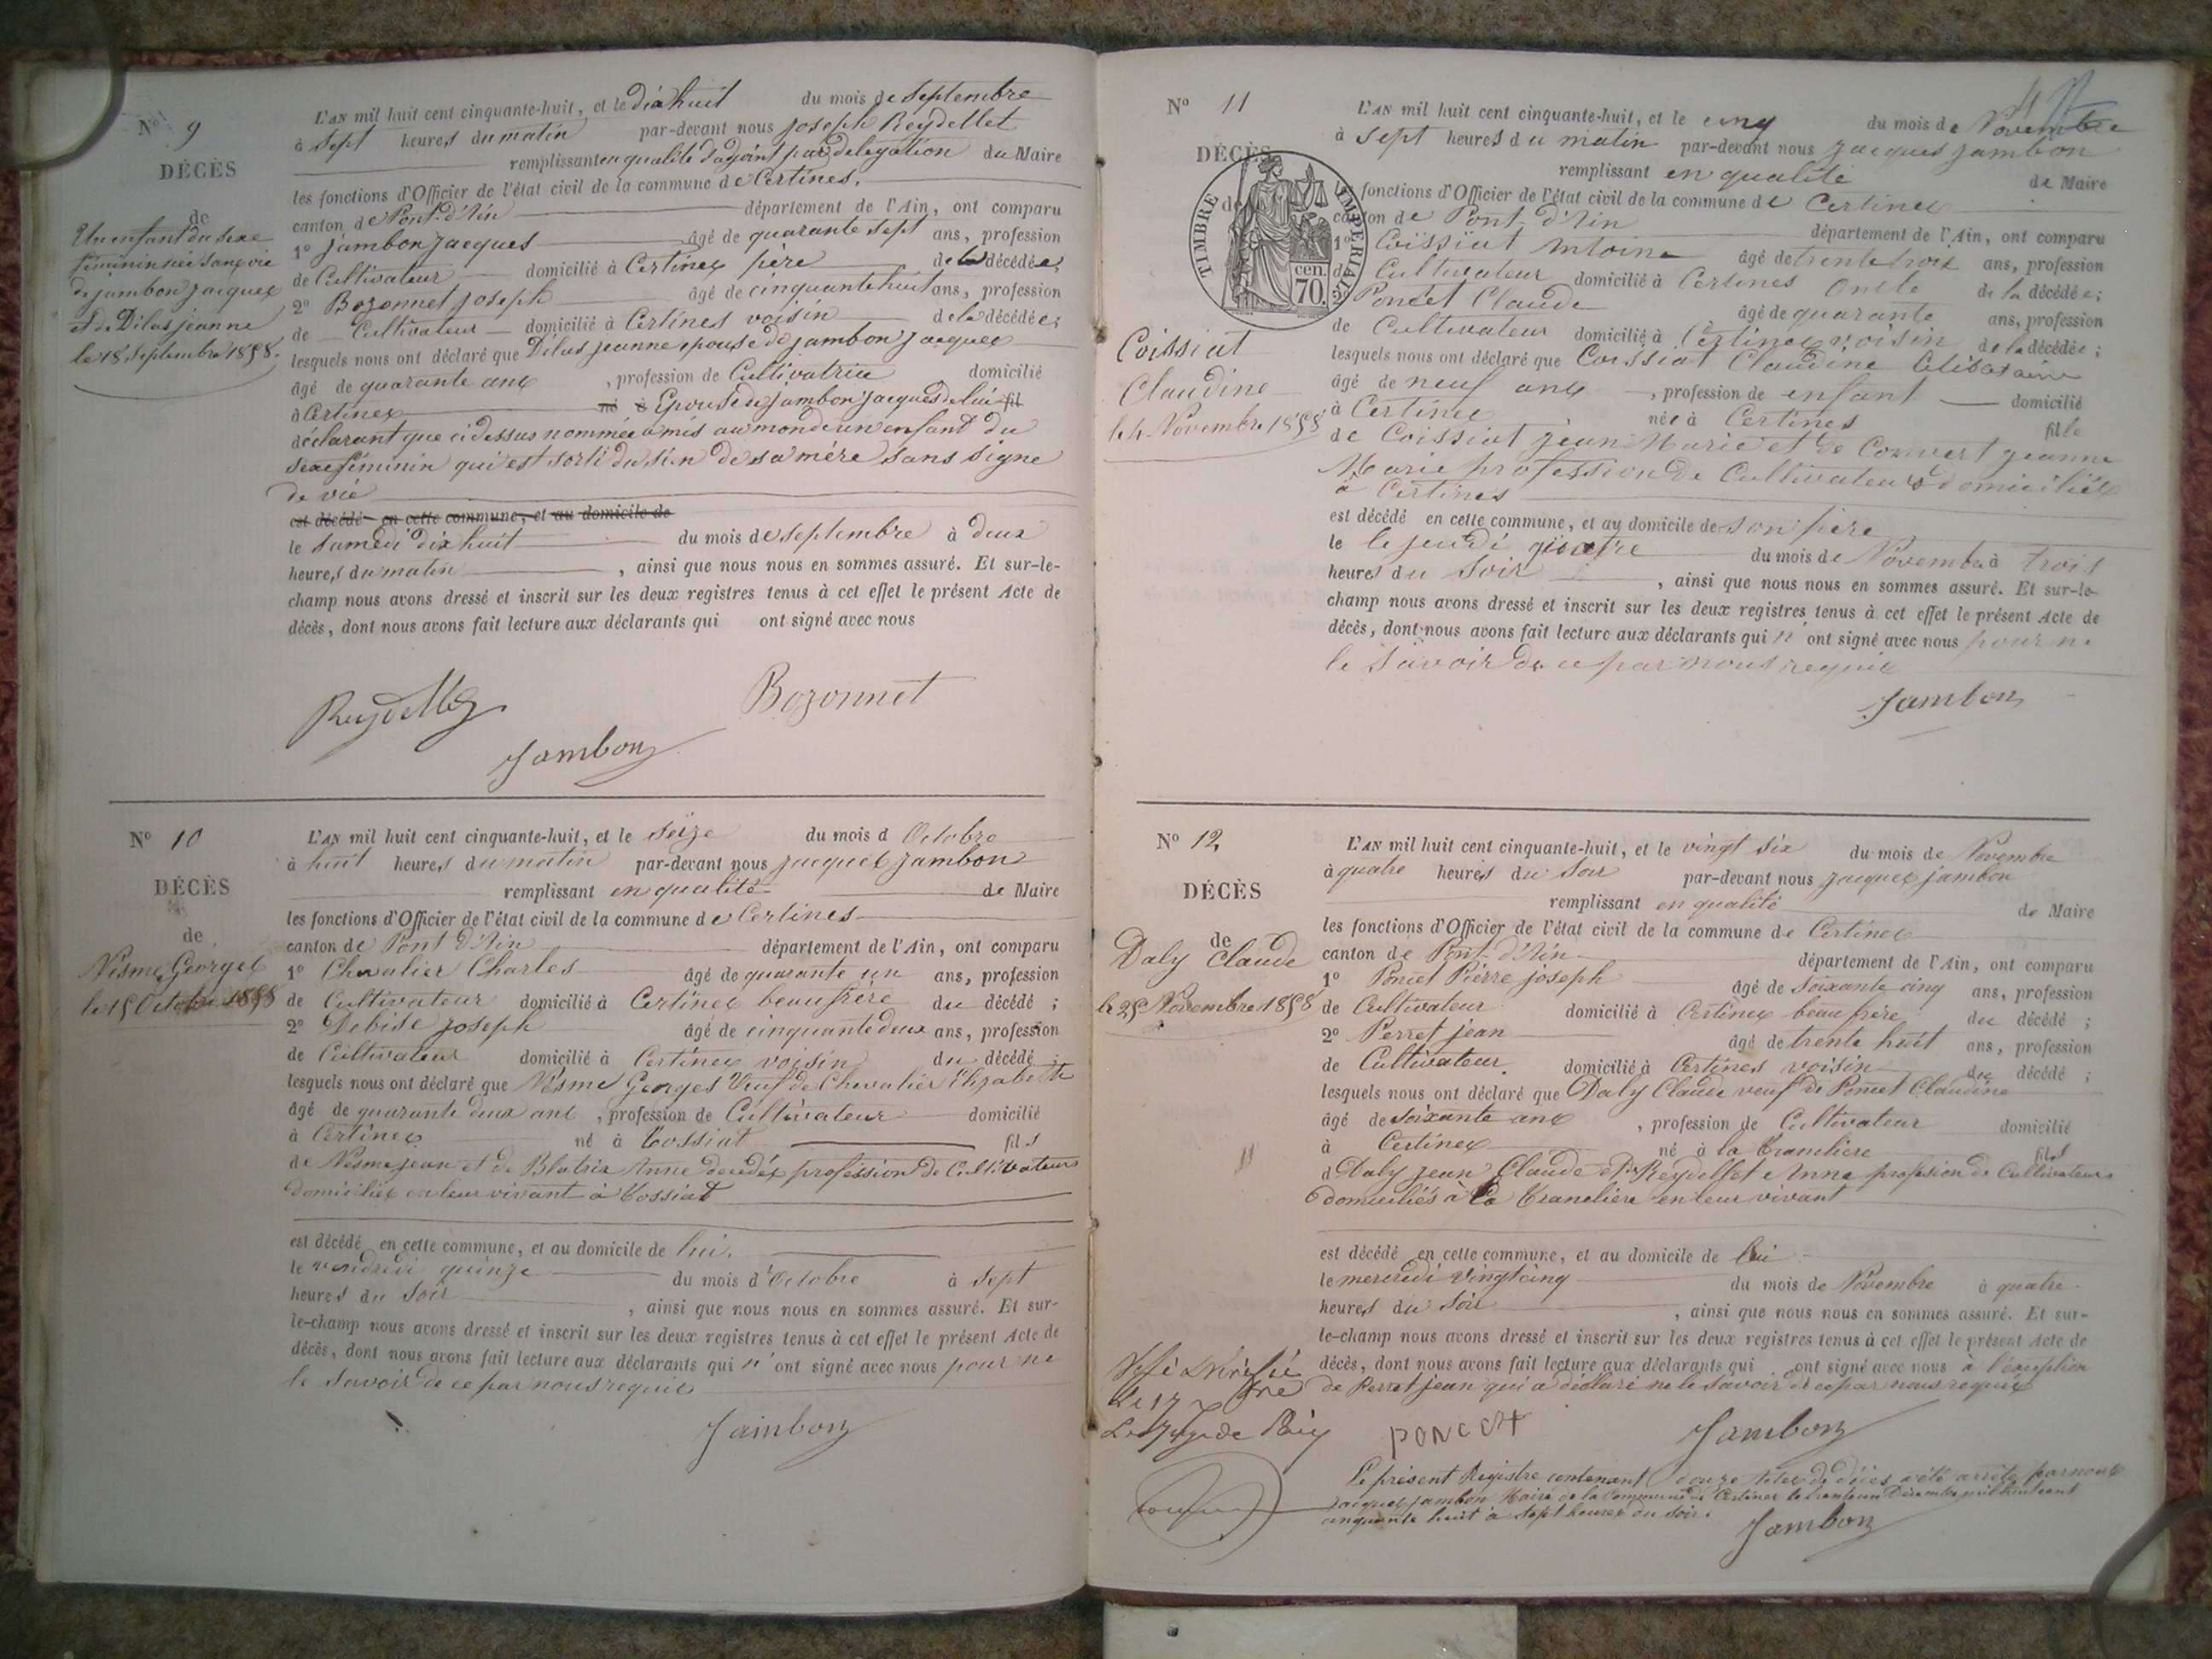 N° 9
DÉCÈS
de
Un enfant du sexe
féminin née sans vie
de jambon jacques
et de Dilas jeanne
le 18 Septembre 1858.
L'AN mil huit cent cinquante-huit, et le dixhuit du mois de Septembre
à Sept heures du matin par-devant nous joseph Reydellet
remplissant en qualité d'adjoint par délégation du Maire
les fonctions d'Officier de l'état civil de la commune de Certines.
canton de Pont-d'Ain département de l'Ain, ont comparu
1° jambon jacques âgé de quarante sept ans, profession
de Cultivateur domicilié à Certines père de la décédée;
2° Bozonnet joseph âgé de cinquante huit ans, profession
de Cultivateur domicilié à Certines voisin de la décédée;
lesquels nous ont déclaré que Dilas jeanne epouse de jambon jacques
âgé de quarante ans, profession de Cultivatrice domicilié
à Certines né à Epouse de jambon jacques de lui fil
déclarant que cidessus nommée a mis au monde un enfant du
Sexe féminin qui est sorti du sein de sa mère sans signe
de vie
est décédé en cette commune, et au domicile de
le Samedi dix huit du mois de Septembre à deux
heures du matin, ainsi que nous nous en sommes assuré. Et sur-le-
champ nous avons dressé et inscrit sur les deux registres tenus à cet effet le présent Acte de
décès, dont nous avons fait lecture aux déclarants qui ont signé avec nous
Reydellet
Bozonnet
Jambon
N° 10
DÉCÈS
de
Nesme Georges
le 15 Octobre 1858
L'AN mil huit cent cinquante-huit, et le Seize du mois d Octobre
à huit heures du matin par-devant nous jacques jambon
remplissant en qualité de Maire
les fonctions d'Officier de l'état civil de la commune de Certines
canton de Pont d'Ain département de l'Ain, ont comparu
1° Chevalier Charles âgé de quarante un ans, profession
de Cultivateur domicilié à Certines beaufrère du décédé;
2° Debise joseph âgé de cinquante deux ans, profession
de Cultivateur domicilié à Certines voisin du décédé;
lesquels nous ont déclaré que Nesme Georges Veuf de Chevalier Elizabeth
âgé de quarante deux ans, profession de Cultivateur domicilié
à Certines né à Tossiat fils
de Nesme jean et de Blatrix Anne decedés profession de Cultivateurs
domiciliés en leur vivant à Tossiat
est décédé en cette commune, et au domicile de lui.
le vendredi quinze du mois d'Octobre à Sept
heures du Soir, ainsi que nous nous en sommes assuré. Et sur-
le-champ nous avons dressé et inscrit sur les deux registres tenus à cet effet le présent Acte de
décès, dont nous avons fait lecture aux déclarants qui n'ont signé avec nous pour ne
le Savoir de ce par nous requis
Jambon
N° 11
DÉCÈS
de
TIMBRE IMPÉRIAL
70 cen.
Coissiat
Claudine
le 4 Novembre 1858
L'AN mil huit cent cinquante-huit, et le cinq du mois de Novembre
à Sept heures du matin par-devant nous jacques jambon
remplissant en qualité de Maire
fonctions d'Officier de l'état civil de la commune de Certines
canton de Pont d'Ain département de l'Ain, ont comparu
1° Coissiat Antoine âgé de trente trois ans, profession
de Cultivateur domicilié à Certines Oncle de la décédée;
2° Poncet Claude âgé de quarante ans, profession
de Cultivateur domicilié à Certines voisin de la décédée;
lesquels nous ont déclaré que Coissiat Claudine Célibataire
âgé de neuf ans, profession de enfant domicilié
à Certines née à Certines fille
de Coissiat jean Marie et de Convert jeanne
Marie profession de Cultivateurs domiciliés
à Certines
est décédé en cette commune, et au domicile de Son père
le le jeudi quatre du mois de Novembre à trois
heures du Soir, ainsi que nous nous en sommes assuré. Et sur-le-
champ nous avons dressé et inscrit sur les deux registres tenus à cet effet le présent Acte de
décès, dont nous avons fait lecture aux déclarants qui n'ont signé avec nous pour ne
le Savoir de ce par nous requis
Jambon
N° 12
DÉCÈS
de
Daly Claude
le 25 Novembre 1858
L'AN mil huit cent cinquante-huit, et le vingt Six du mois de Novembre
à quatre heures du Soir par-devant nous jacques jambon
remplissant en qualité de Maire
les fonctions d'Officier de l'état civil de la commune de Certines
canton de Pont-d'Ain département de l'Ain, ont comparu
1° Poncet Pierre joseph âgé de Soixante cinq ans, profession
de Cultivateur domicilié à Certines beau frère du décédé;
2° Perret jean âgé de trente huit ans, profession
de Cultivateur domicilié à Certines voisin du décédé;
lesquels nous ont déclaré que Daly Claude veuf de Poncet Claudine
âgé de Soixante ans, profession de Cultivateur domicilié
à Certines né à la Tranclière fils
d Daly jean Claude et de Reydellet Anne profession de Cultivateurs
domiciliés à La Tranclière en leur vivant
est décédé en cette commune, et au domicile de lui
le mercredi vingtcinq du mois de Novembre à quatre
heures du Soir, ainsi que nous nous en sommes assuré. Et sur-
le-champ nous avons dressé et inscrit sur les deux registres tenus à cet effet le présent Acte de
décès, dont nous avons fait lecture aux déclarants qui ont signé avec nous à l'exception
de Perret jean qui a déclaré ne le Savoir de ce par nous requis
Le juge de Paix
PONCET
Jambon
Le présent Registre contenant douze actes de décès a été arrêté par nous
jacques jambon Maire de la Commune de Certines le trente un Décembre mil huit cent
cinquante huit à Sept heures du Soir.
Jambon